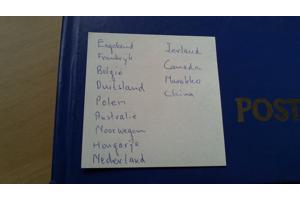 Engeland
Frankrijk
België
Duitsland
Polen
Australie
Noorwegen
Hongarije
Nederland
Ierland
Canada
Marokko
China
POST